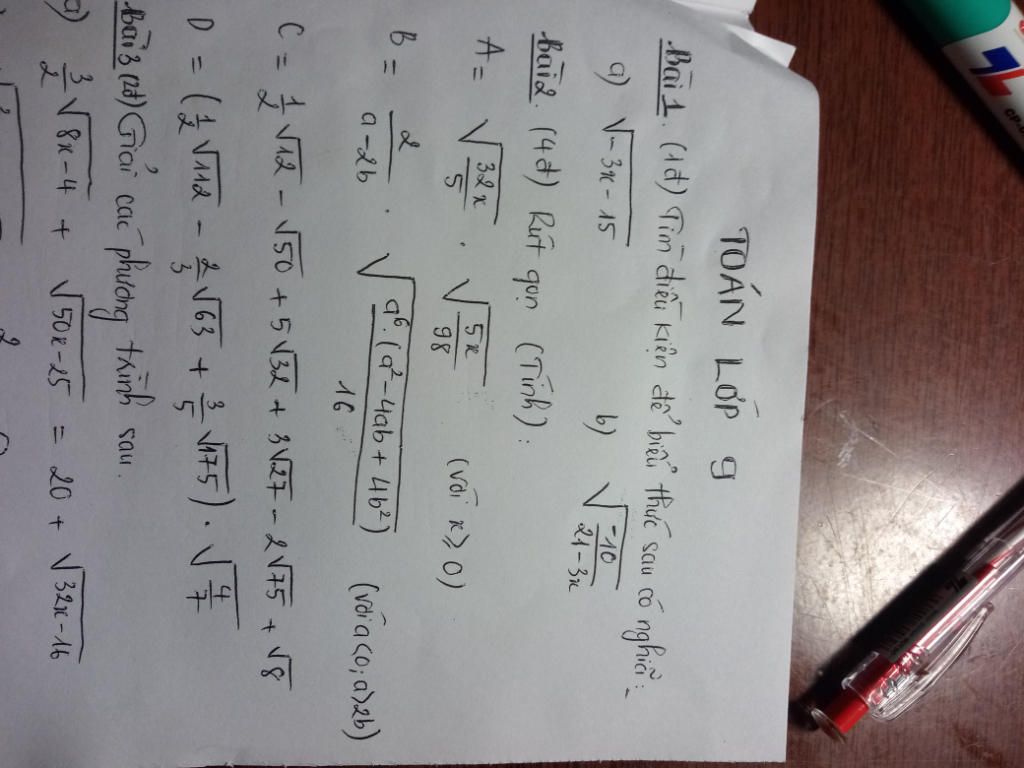 TOÁN LỚP 9
Bài 1. (1đ) Tìm điều kiện để biểu thức sau có nghĩa:
a) √(-3x - 15) b) √(-10/(21-3x))
Bài 2. (4đ) Rút gọn (Tính):
A = √(32x/5) . √(5x/98) (với x ≥ 0)
B = 2/(a-2b) . √(a⁶.(a²-4ab+4b²)/16) (với a<0; a>2b)
C = 1/2 √12 - √50 + 5√32 + 3√27 - 2√75 + √8
D = (1/2 √112 - 2/3 √63 + 3/5 √175) . √(4/7)
Bài 3 (2đ) Giải các phương trình sau.
a) 3/2 √(8x-4) + √(50x-25) = 20 + √(32x-16)